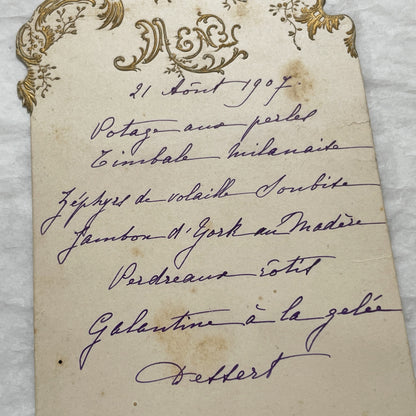 Menu
21 Août 1907.
Potage aux perles
Timbale Milanaise
Zéphyrs de volaille Soubise
Jambon d'York au Madère
Perdreaux rôtis
Galantine à la gelée
Dessert